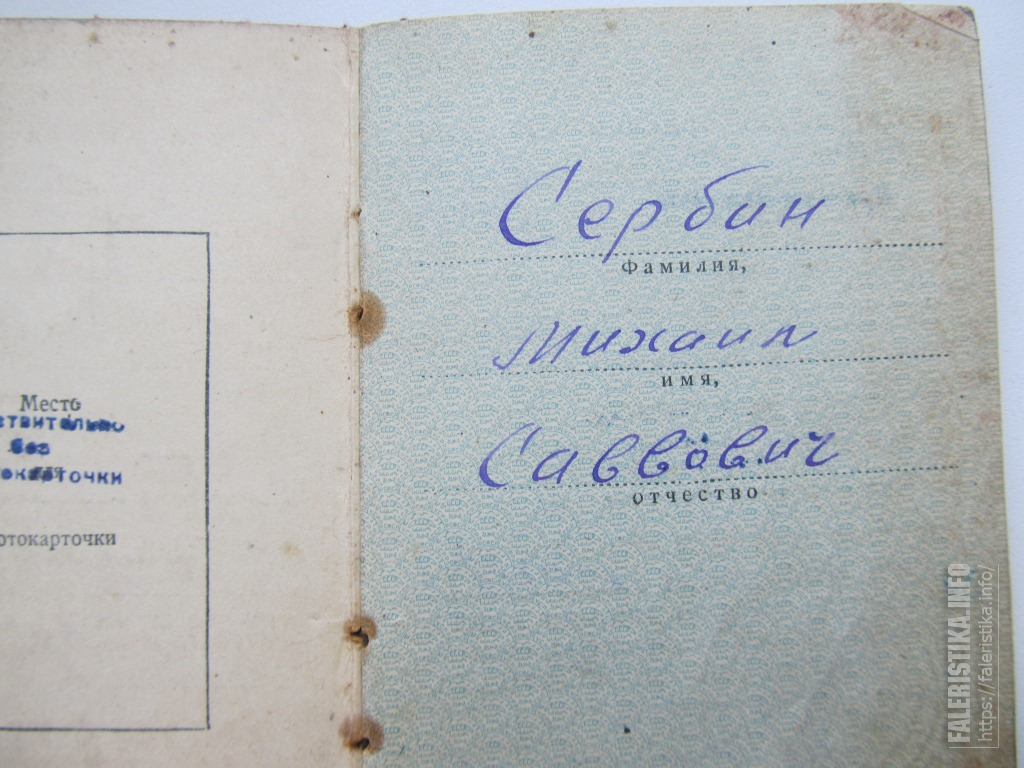 Место
ствительно
без
для
окарточки
отокарточки
Сербин
Фамилия,
Михаил
имя,
Саввович
отчество
FALERISTIKA.INFO
https://faleristika.info/